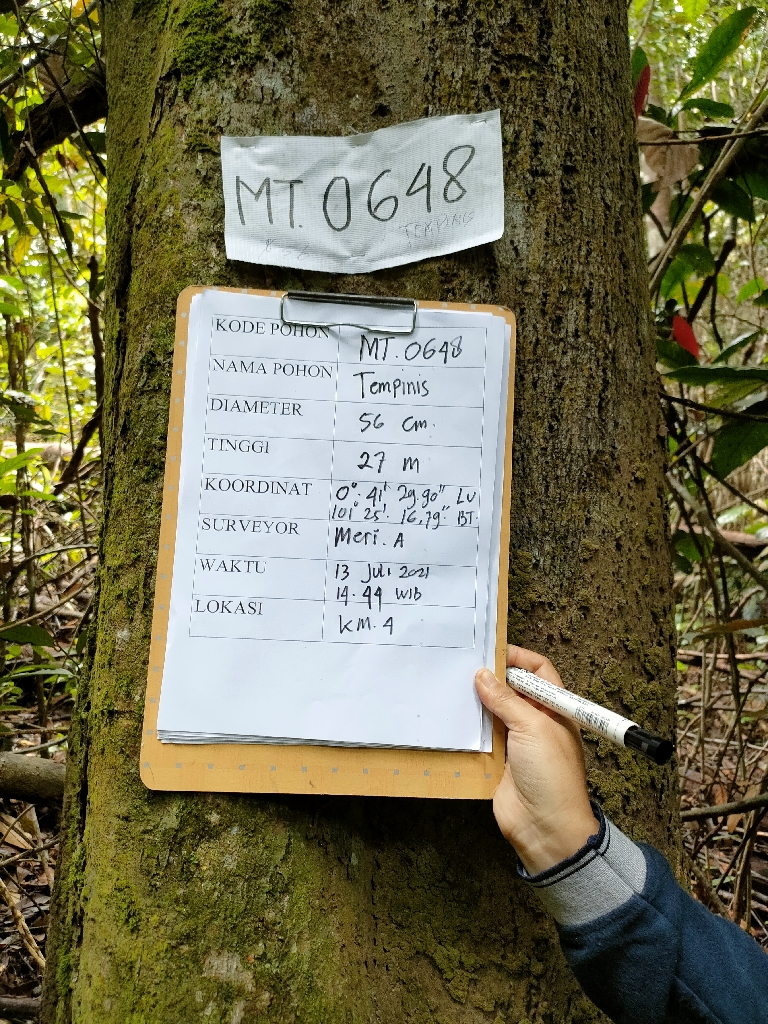 MT. 0648
TEMPINIS
KODE POHON MT. 0648
NAMA POHON Tempinis
DIAMETER 56 cm.
TINGGI 27 m
KOORDINAT 0°. 41' 29.90" LU
101° 25'. 16,79" BT
SURVEYOR Meri. A
WAKTU 13 Juli 2021
14.44 WIB
LOKASI KM. 4